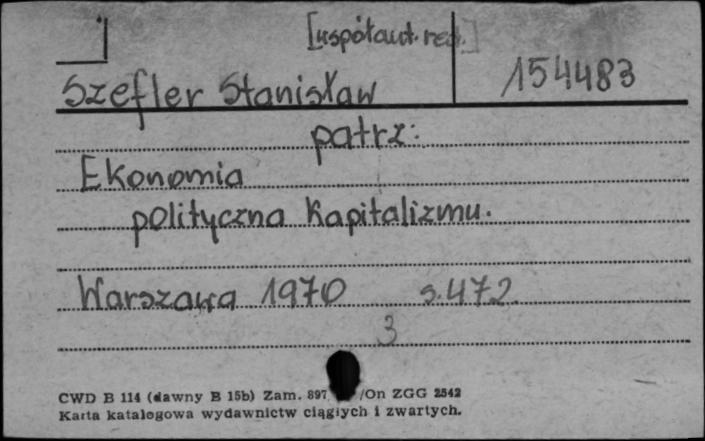 [współaut. red.]
Szefler Stanisław 154483
patrz:
Ekonomia
polityczna kapitalizmu.
Warszawa 1970 s. 472
3
CWD B 114 (dawny B 15b) Zam. 897 /On ZGG 2542
Karta katalogowa wydawnictw ciągłych i zwartych.